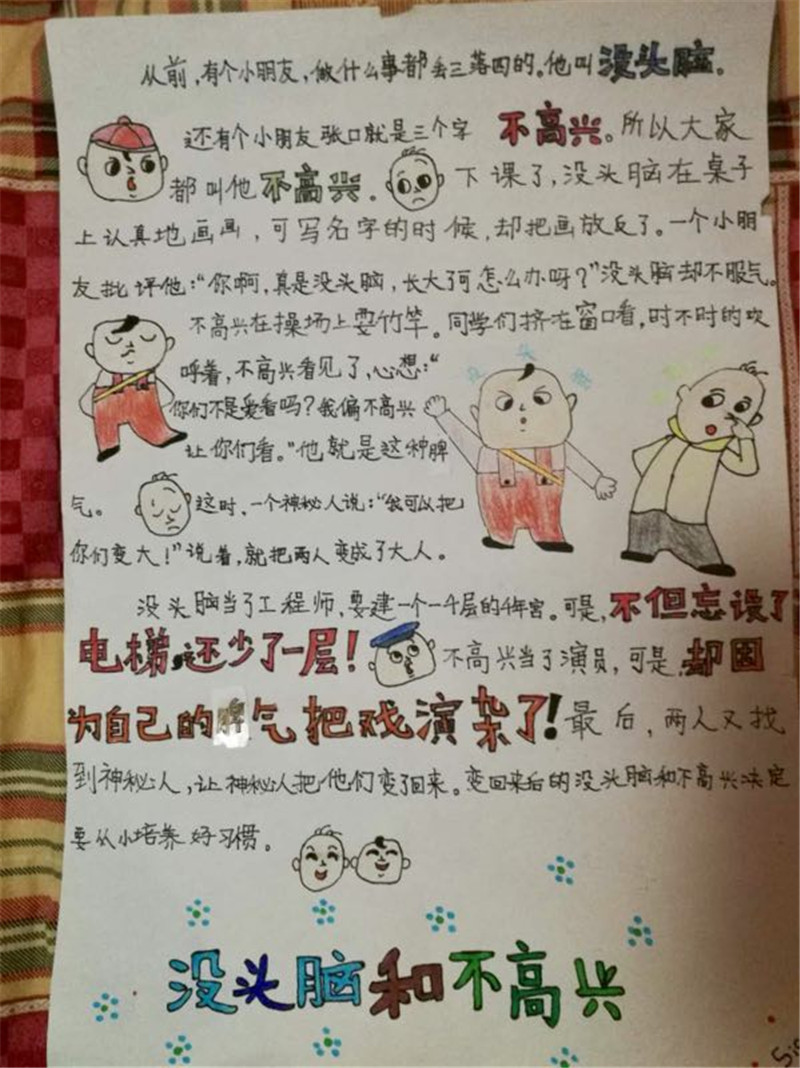 从前,有个小朋友,做什么事都丢三落四的。他叫没头脑。
还有个小朋友张口就是三个字 不高兴。所以大家
都叫他不高兴。下课了,没头脑在桌子
上认真地画画,可写名字的时候,却把画放反了。一个小朋
友批评他:“你啊,真是没头脑,长大了可怎么办呀?”没头脑却不服气。
不高兴在操场上耍竹竿。同学们挤在窗口看,时不时的欢
呼着,不高兴看见了,心想:“
你们不是爱看吗?我偏不高兴
让你们看。”他就是这种脾
气。这时,一个神秘人说:“我可以把
你们变大!”说着,就把两人变成了大人。
没头脑当了工程师,要建一个一千层的少年宫。可是,不但忘设了
电梯,还少了一层!不高兴当了演员,可是,却因
为自己的脾气把戏演杂了!最后,两人又找
到神秘人,让神秘人把他们变了回来。变回来后的没头脑和不高兴决定
要从小培养好习惯。
没头脑
没头脑和不高兴